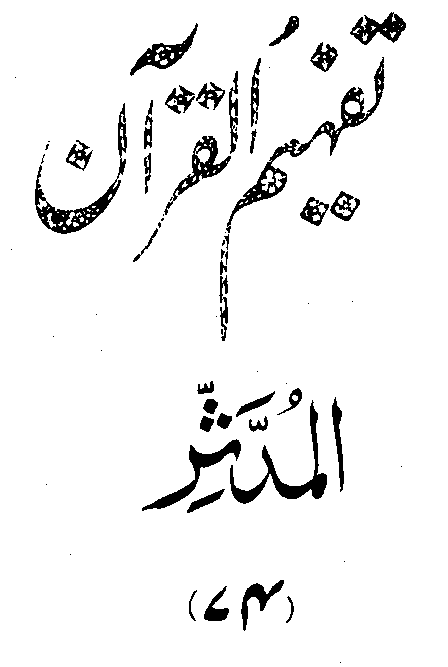 تفہیمُ القُرآن
المُدَّثِّر
(۷۴)